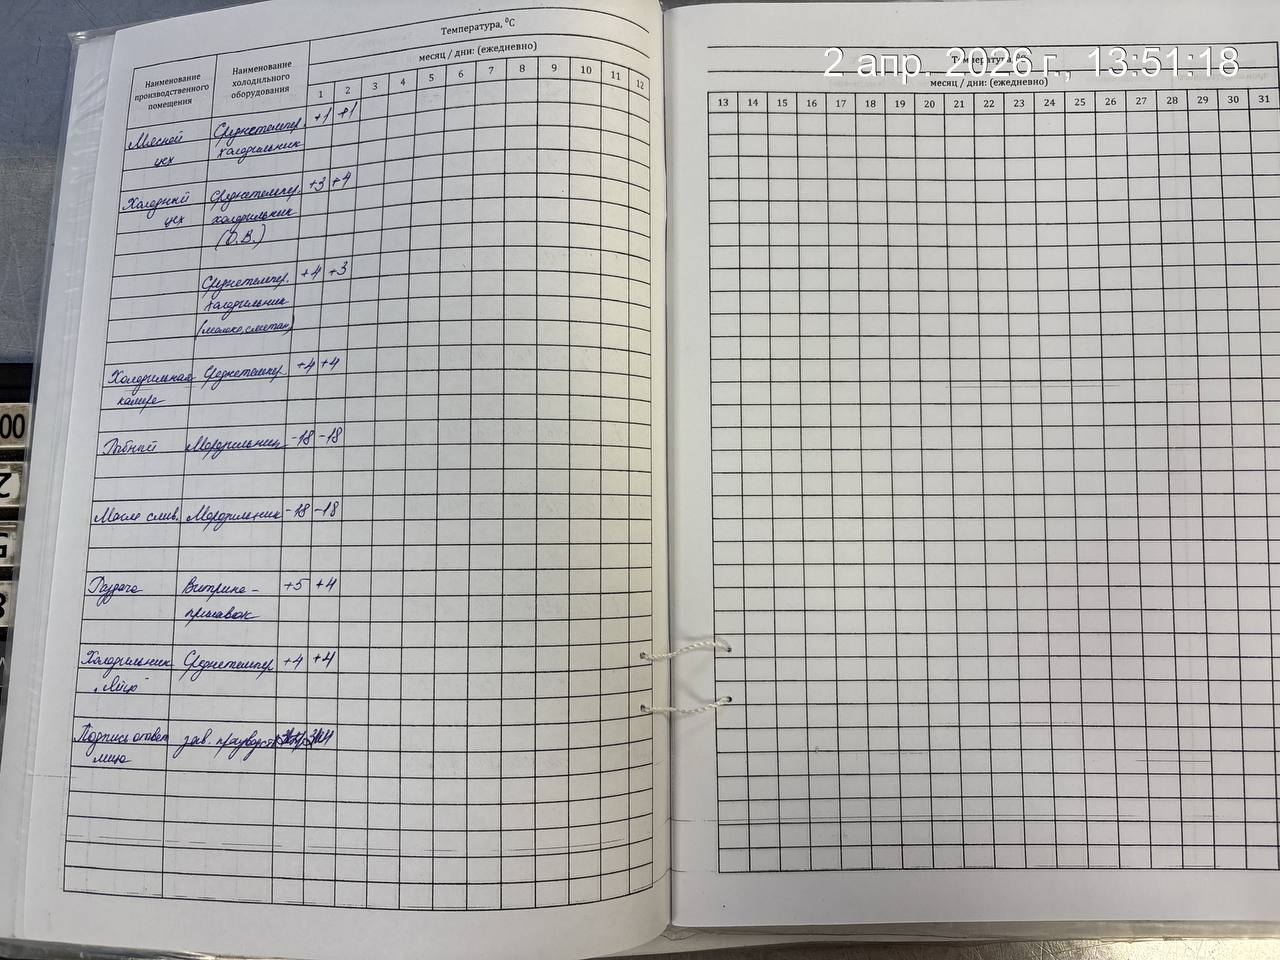 Температура, ⁰С
месяц / дни: (ежедневно)
Наименование производственного помещения
Наименование холодильного оборудования
1 2 3 4 5 6 7 8 9 10 11 12
Мясной Среднетемпер. +1 +1
цех холодильник
Холодный Среднетемпер. +3 +4
цех холодильник
(О.В.)
Среднетемпер. +4 +3
холодильник
(молоко, сметан)
Холодильная Среднетемпер. +4 +4
камера
Рыбный Морозильник -18 -18
Масло слив. Морозильник -18 -18
Раздача Витрина- +5 +4
прилавок
Холодильник Среднетемпер +4 +4
"Яйцо"
Подпись ответ зав. производст
лица
2 апр. 2026 г., 13:51:18
Температура, ⁰С
месяц / дни: (ежедневно)
13 14 15 16 17 18 19 20 21 22 23 24 25 26 27 28 29 30 31
00
2
8